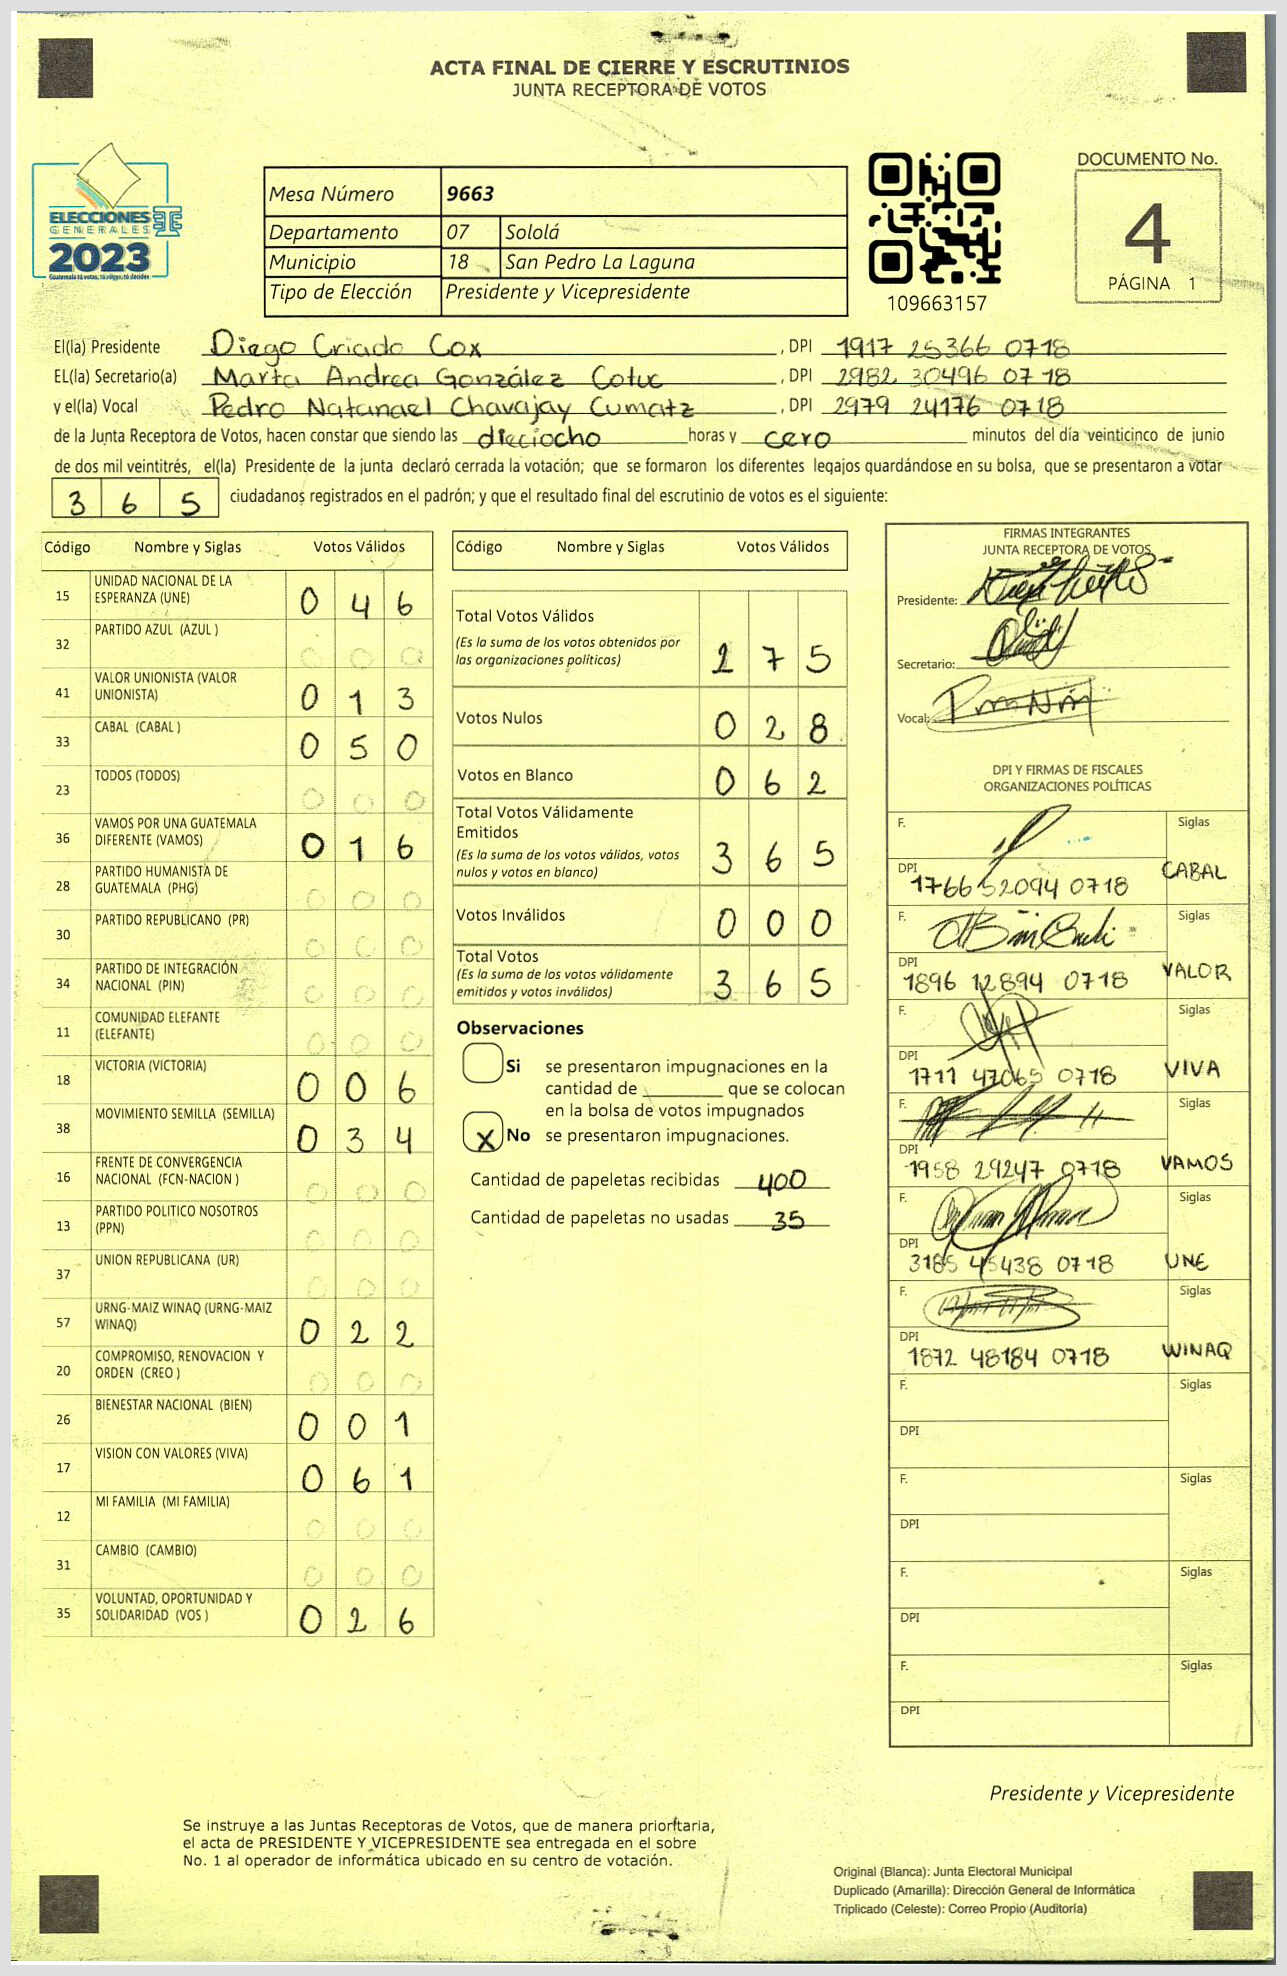 ACTA FINAL DE CIERRE Y ESCRUTINIOS
JUNTA RECEPTORA DE VOTOS
ELECCIONES
GENERALES
2023
Guatemala tú votas, tú eliges, tú decides
Mesa Número 9663
Departamento 07 Sololá
Municipio 18 San Pedro La Laguna
Tipo de Elección Presidente y Vicepresidente
109663157
DOCUMENTO No.
4
PÁGINA 1
El(la) Presidente Diego Criado Cox , DPI 1917 25366 0718
EL(la) Secretario(a) Marta Andrea González Cotuc , DPI 2982 30496 0718
y el(la) Vocal Pedro Natanael Chavajay Cumatz , DPI 2979 24176 0718
de la Junta Receptora de Votos, hacen constar que siendo las dieciocho horas y cero minutos del día veinticinco de junio
de dos mil veintitrés, el(la) Presidente de la junta declaró cerrada la votación; que se formaron los diferentes legajos guardándose en su bolsa, que se presentaron a votar
3 6 5 ciudadanos registrados en el padrón; y que el resultado final del escrutinio de votos es el siguiente:
Código Nombre y Siglas Votos Válidos
15 UNIDAD NACIONAL DE LA ESPERANZA (UNE) 0 4 6
32 PARTIDO AZUL (AZUL ) 0 0 0
41 VALOR UNIONISTA (VALOR UNIONISTA) 0 1 3
33 CABAL (CABAL ) 0 5 0
23 TODOS (TODOS) 0 0 0
36 VAMOS POR UNA GUATEMALA DIFERENTE (VAMOS) 0 1 6
28 PARTIDO HUMANISTA DE GUATEMALA (PHG) 0 0 0
30 PARTIDO REPUBLICANO (PR) 0 0 0
34 PARTIDO DE INTEGRACIÓN NACIONAL (PIN) 0 0 0
11 COMUNIDAD ELEFANTE (ELEFANTE) 0 0 0
18 VICTORIA (VICTORIA) 0 0 6
38 MOVIMIENTO SEMILLA (SEMILLA) 0 3 4
16 FRENTE DE CONVERGENCIA NACIONAL (FCN-NACION ) 0 0 0
13 PARTIDO POLITICO NOSOTROS (PPN) 0 0 0
37 UNION REPUBLICANA (UR) 0 0 0
57 URNG-MAIZ WINAQ (URNG-MAIZ WINAQ) 0 2 2
20 COMPROMISO, RENOVACION Y ORDEN (CREO ) 0 0 0
26 BIENESTAR NACIONAL (BIEN) 0 0 1
17 VISION CON VALORES (VIVA) 0 6 1
12 MI FAMILIA (MI FAMILIA) 0 0 0
31 CAMBIO (CAMBIO) 0 0 0
35 VOLUNTAD, OPORTUNIDAD Y SOLIDARIDAD (VOS ) 0 2 6
Código Nombre y Siglas Votos Válidos
Total Votos Válidos
(Es la suma de los votos obtenidos por
las organizaciones políticas) 2 7 5
Votos Nulos 0 2 8
Votos en Blanco 0 6 2
Total Votos Válidamente
Emitidos
(Es la suma de los votos válidos, votos
nulos y votos en blanco) 3 6 5
Votos Inválidos 0 0 0
Total Votos
(Es la suma de los votos válidamente
emitidos y votos inválidos) 3 6 5
Observaciones
Si se presentaron impugnaciones en la
cantidad de ________ que se colocan
en la bolsa de votos impugnados
X No se presentaron impugnaciones.
Cantidad de papeletas recibidas 400
Cantidad de papeletas no usadas 35
FIRMAS INTEGRANTES
JUNTA RECEPTORA DE VOTOS
Presidente:
Secretario:
Vocal:
DPI Y FIRMAS DE FISCALES
ORGANIZACIONES POLÍTICAS
F. Siglas
DPI 1766 52094 0718 CABAL
F. Siglas
DPI 1896 12894 0718 VALOR
F. Siglas
DPI 1711 47065 0718 VIVA
F. Siglas
DPI 1958 29247 0718 VAMOS
F. Siglas
DPI 3185 45438 0718 UNE
F. Siglas
DPI 1872 48184 0718 WINAQ
F. Siglas
DPI
F. Siglas
DPI
F. Siglas
DPI
F. Siglas
DPI
Presidente y Vicepresidente
Se instruye a las Juntas Receptoras de Votos, que de manera prioritaria,
el acta de PRESIDENTE Y VICEPRESIDENTE sea entregada en el sobre
No. 1 al operador de informática ubicado en su centro de votación.
Original (Blanca): Junta Electoral Municipal
Duplicado (Amarilla): Dirección General de Informática
Triplicado (Celeste): Correo Propio (Auditoría)